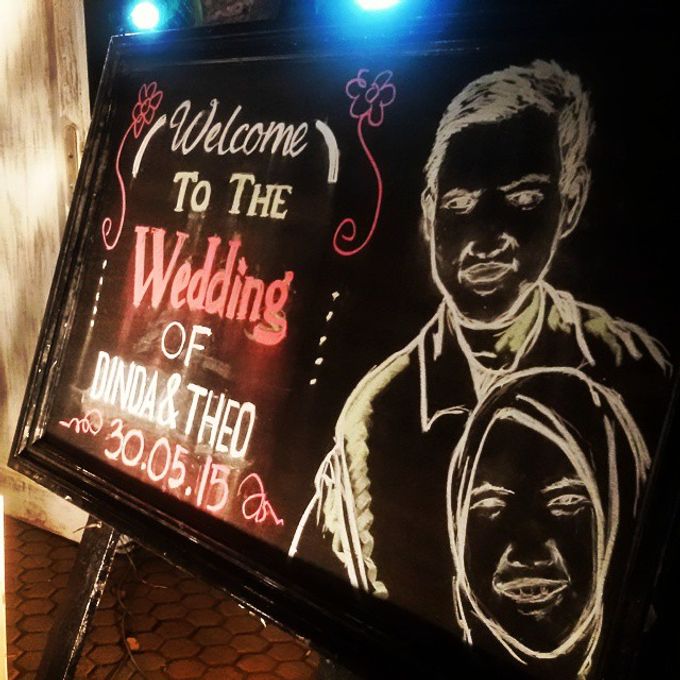 Welcome
To The
Wedding
OF
DINDA & THEO
30.05.15